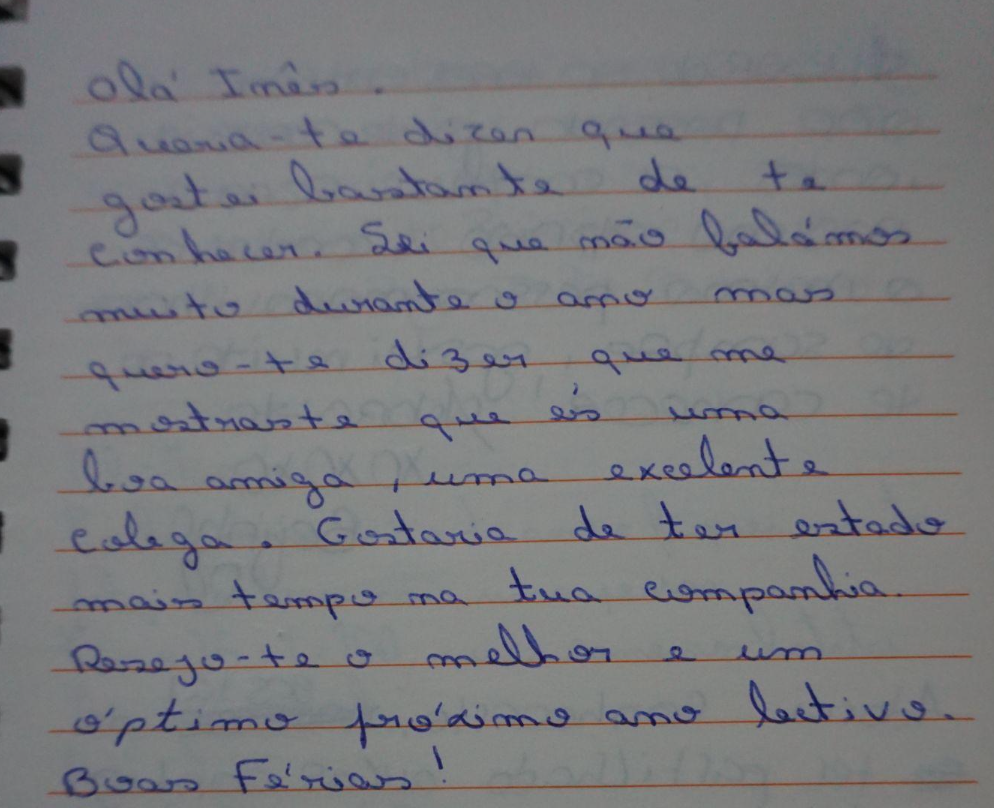 Olá Inês.
Queria-te dizer que
gostei bastante de te
conhecer. Sei que não falámos
muito durante o ano mas
quero-te dizer que me
mostraste que és uma
boa amiga, uma excelente
colega. Gostaria de ter estado
mais tempo na tua companhia.
Desejo-te o melhor e um
óptimo próximo ano lectivo.
Boas Férias!